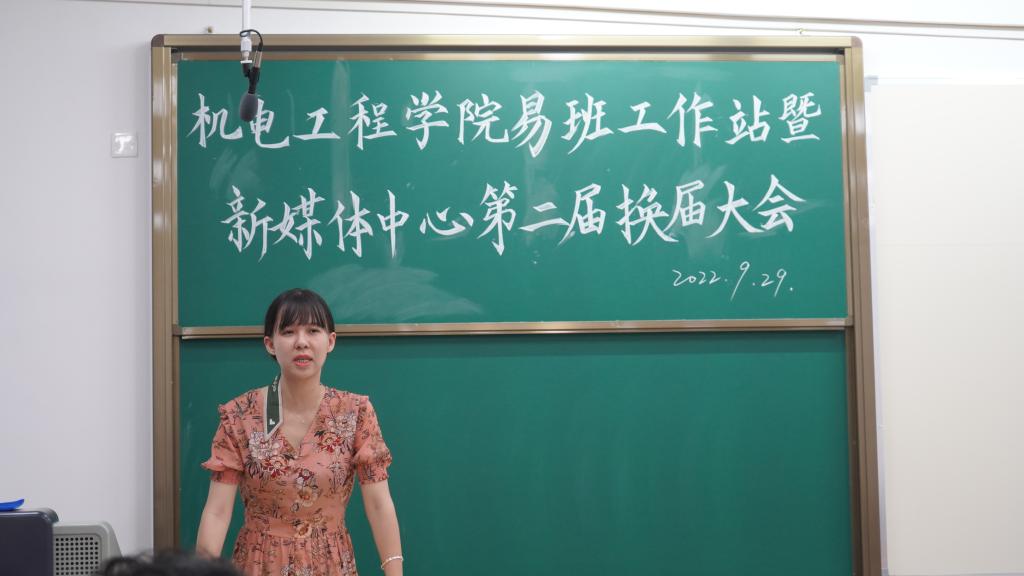 机电工程学院易班工作站暨
新媒体中心第二届换届大会
2022.9.29.